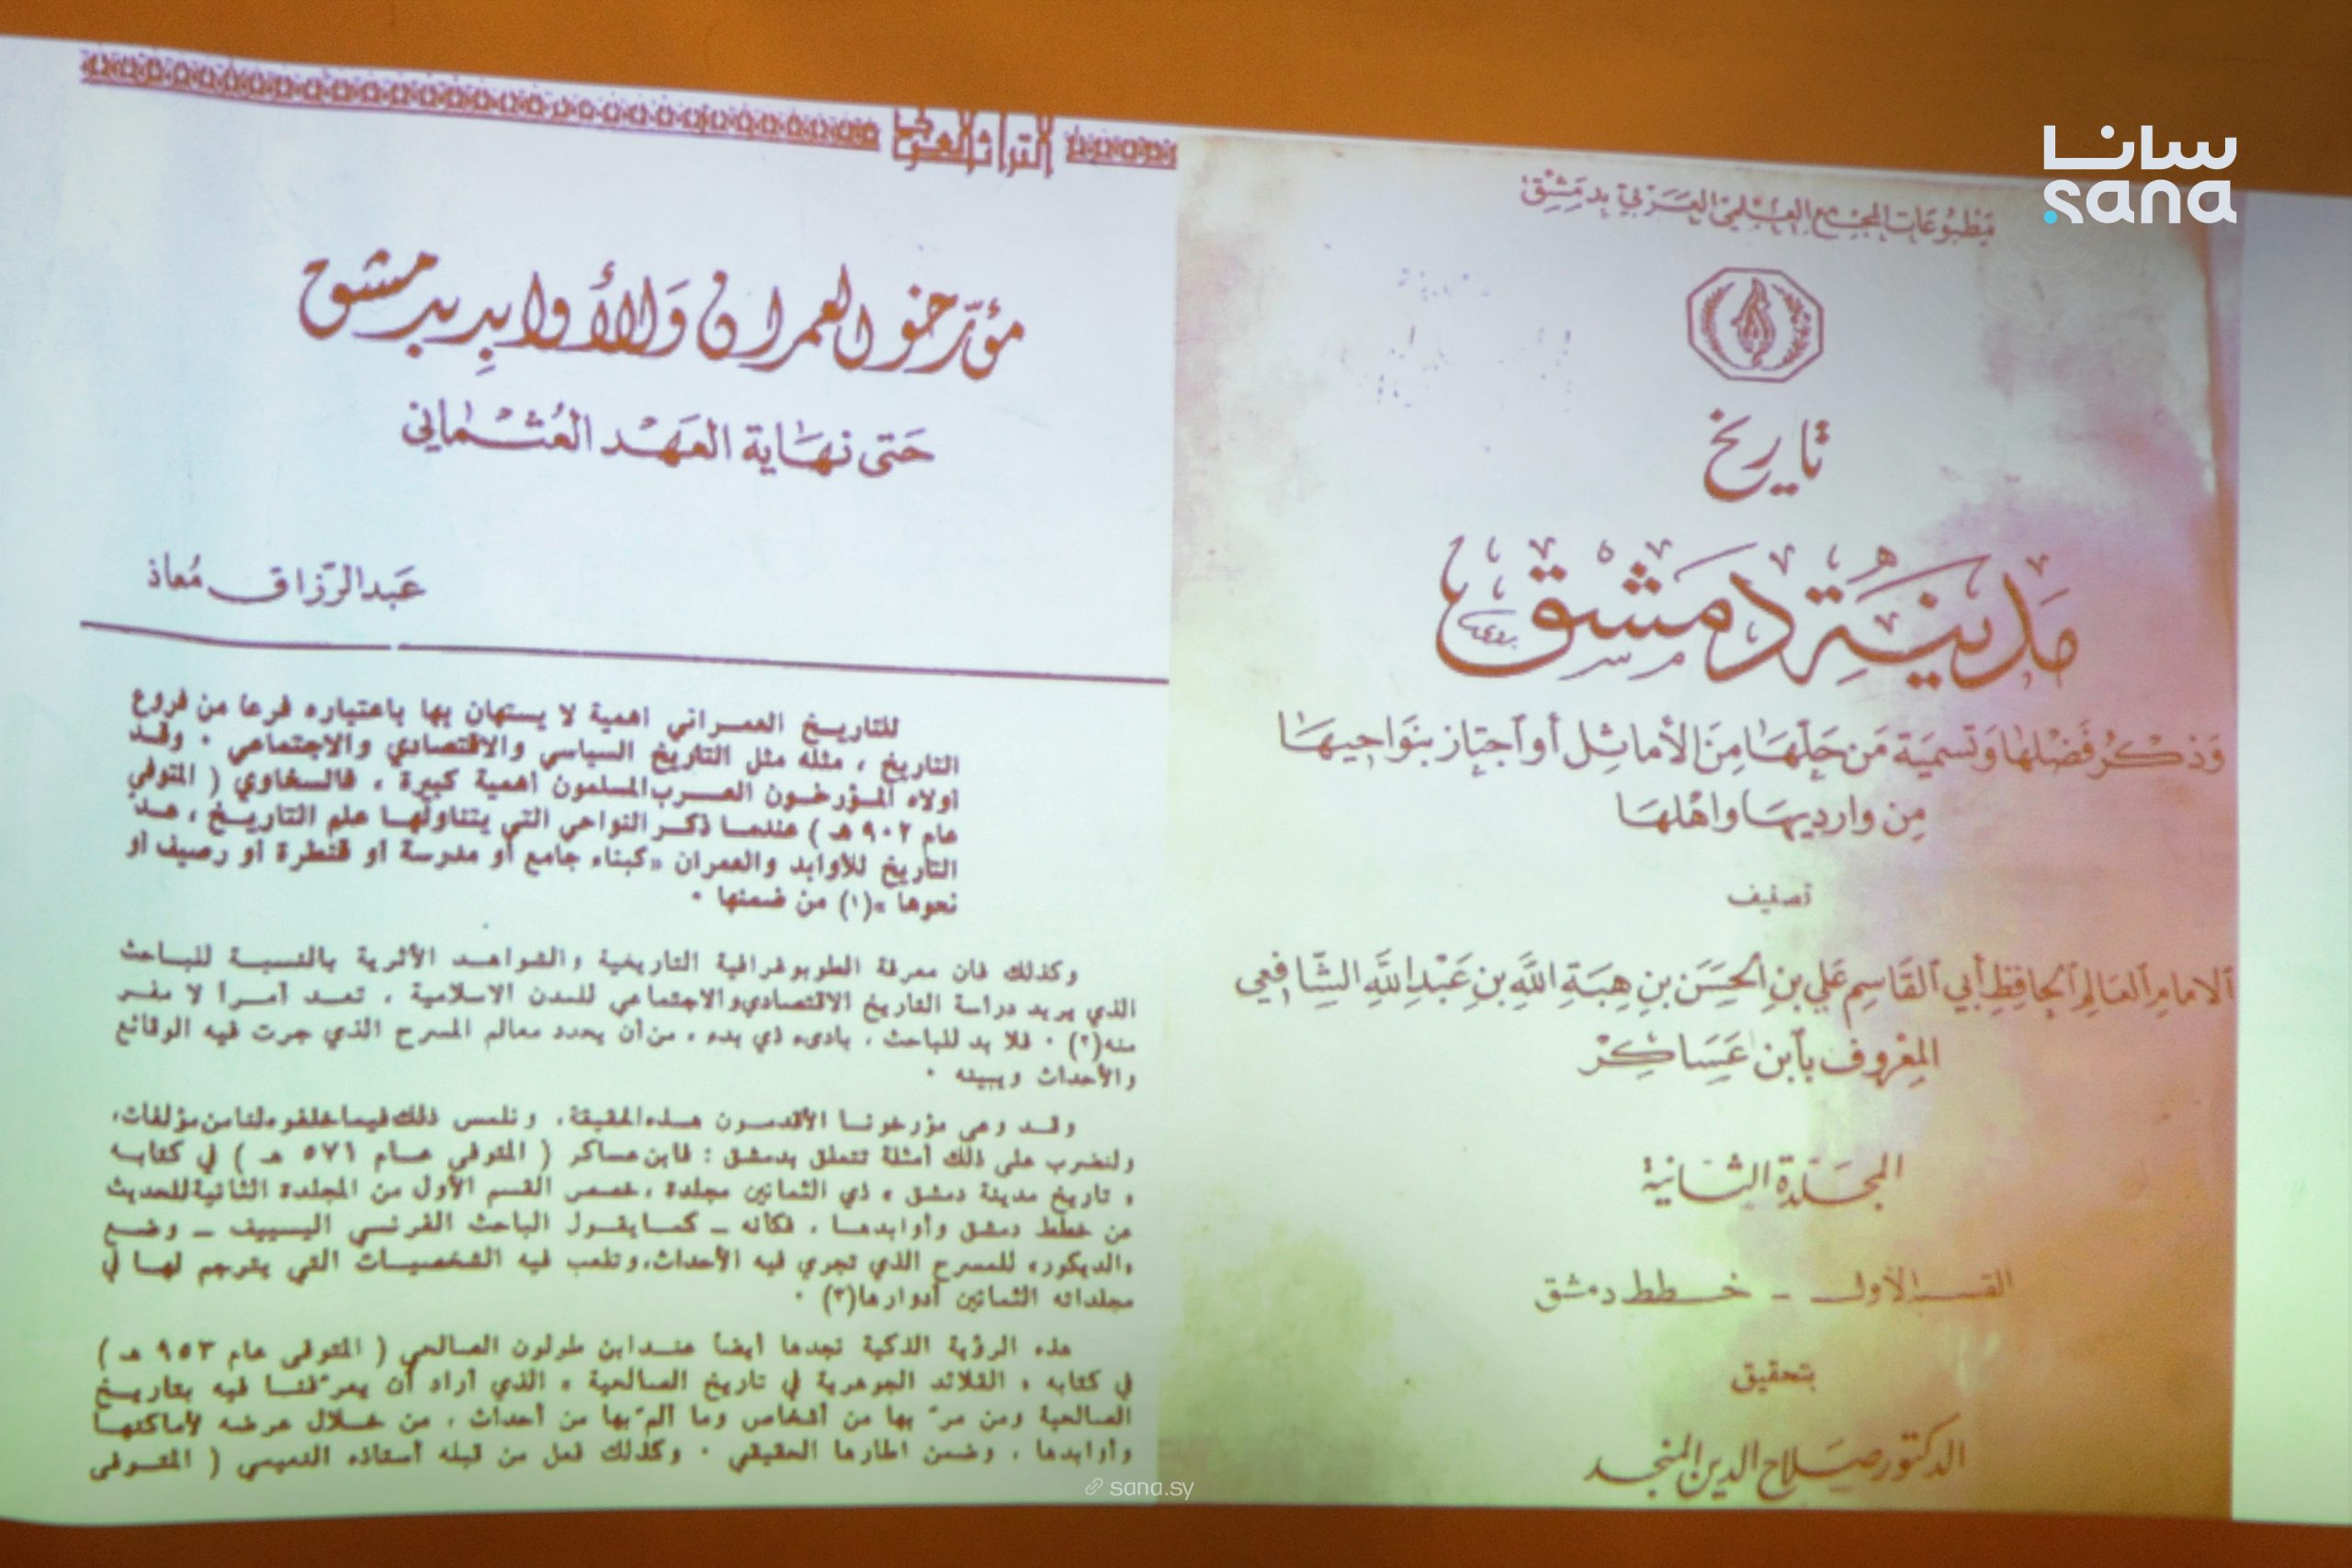 سانا
sana
مَطبُوعَات المجْمَع العِلمي العَرَبي بدِمَشِق
تاريخ
مَدينَة دمَشق
وَذكرُ فَضلهَا وَتسميَة مَن حَلّهَا مِنَ الأماثِل أو اجتَاز بنَواحيهَا
مِن وارديهَا وَاهلهَا
تصنيف
الامام العَالِم الحَافِظ أبي القَاسِم عَلي بن الحَسَن بن هِبَة اللَّه بن عَبد اللَّه الشَّافِعي
المعْروف بابن عَسَاكِرْ
المجَلدة الثانية
القسم الأول - خطط دمشق
بتحقيق
الدكتور صَلاح الدين المنجد
التراث العربي
مؤرّخو العمران وَالأوابِد بدمشق
حَتى نهَاية العَهد العُثماني
عَبد الرّزاق مُعاذ
للتاريخ العمراني اهمية لا يستهان بها باعتباره فرعا من فروع
التاريخ ، مثله مثل التاريخ السياسي والاقتصادي والاجتماعي . وقد
اولاه المؤرخون العرب المسلمون أهمية كبيرة ، فالسخاوي ( المتوفي
عام ٩٠٢ هـ ) عندما ذكر النواحي التي يتناولها علم التاريخ ، عدّ
التاريخ للأوابد والعمران «كبناء جامع أو مدرسة أو قنطرة أو رصيف أو
نحوها »(١) من ضمنها .
وكذلك فان معرفة الطوبوغرافية التاريخية والشواهد الأثرية بالنسبة للباحث
الذي يريد دراسة التاريخ الاقتصادي والاجتماعي للمدن الاسلامية ، تعد أمراً لا مفر
منه(٢) . فلا بد للباحث ، بادىء ذي بدء ، من أن يحدد معالم المسرح الذي جرت فيه الوقائع
والأحداث ويبينه .
وقد وعى مؤرخونا الأقدمون هذه الحقيقة ، ونلمس ذلك فيما خلفوه لنا من مؤلفات،
ولنضرب على ذلك أمثلة تتعلق بدمشق : فابن عساكر ( المتوفى عام ٥٧١ هـ ) في كتابه
« تاريخ مدينة دمشق » ذي الثمانين مجلدة ، خصص القسم الأول من المجلدة الثانية للحديث
عن خطط دمشق وأوابدها ، فكأنه – كما يقول الباحث الفرنسي اليسييف – وضع
«الديكور» للمسرح الذي تجري فيه الأحداث، وتلعب فيه الشخصيات التي يترجم لها في
مجلداته الثمانين أدوارها(٣) .
هذه الرؤية الذكية نجدها أيضاً عند ابن طولون الصالحي ( المتوفى عام ٩٥٣ هـ )
في كتابه « القلائد الجوهرية في تاريخ الصالحية » الذي أراد أن يعرّفنا فيه بتاريخ
الصالحية ومن مرّ بها من أشخاص وما ألمّ بها من أحداث ، من خلال عرضه لأماكنها
وأوابدها ، وضمن اطارها الحقيقي . وكذلك فعل من قبله أستاذه النعيمي ( المتوفى
sana.sy